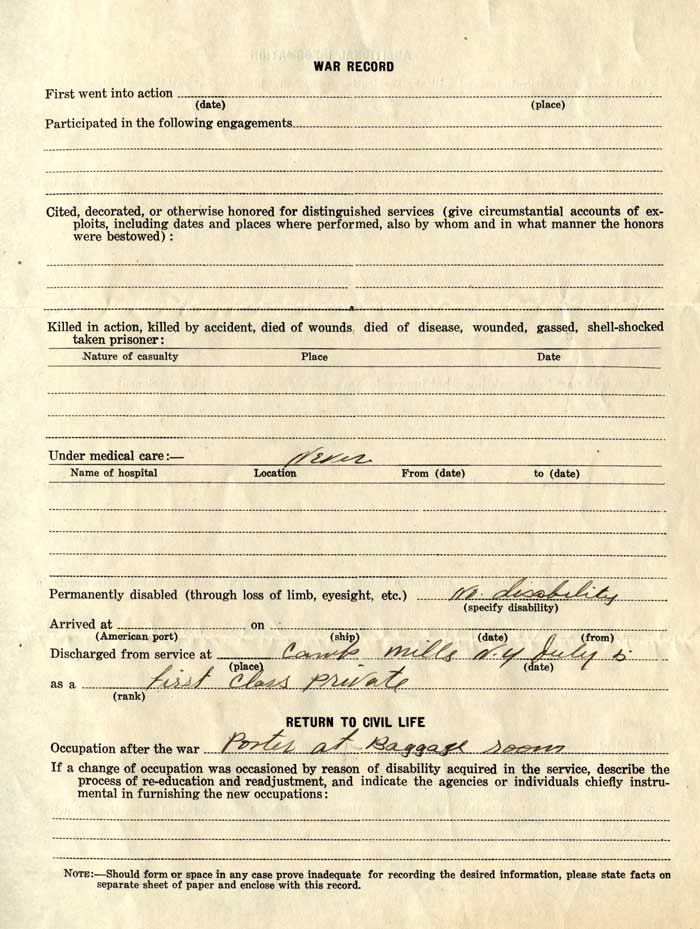 WAR RECORD
First went into action
(date) (place)
Participated in the following engagements
Cited, decorated, or otherwise honored for distinguished services (give circumstantial accounts of ex-
ploits, including dates and places where performed, also by whom and in what manner the honors
were bestowed) :
Killed in action, killed by accident, died of wounds, died of disease, wounded, gassed, shell-shocked
taken prisoner:
Nature of casualty Place Date
Under medical care:— Never
Name of hospital Location From (date) to (date)
Permanently disabled (through loss of limb, eyesight, etc.) No. disability
(specify disability)
Arrived at on
(American port) (ship) (date) (from)
Discharged from service at Camp Mills N.Y July 5
(place) (date)
as a first class private
(rank)
RETURN TO CIVIL LIFE
Occupation after the war Porter at Baggage room
If a change of occupation was occasioned by reason of disability acquired in the service, describe the
process of re-education and readjustment, and indicate the agencies or individuals chiefly instru-
mental in furnishing the new occupations:
NOTE:—Should form or space in any case prove inadequate for recording the desired information, please state facts on
separate sheet of paper and enclose with this record.